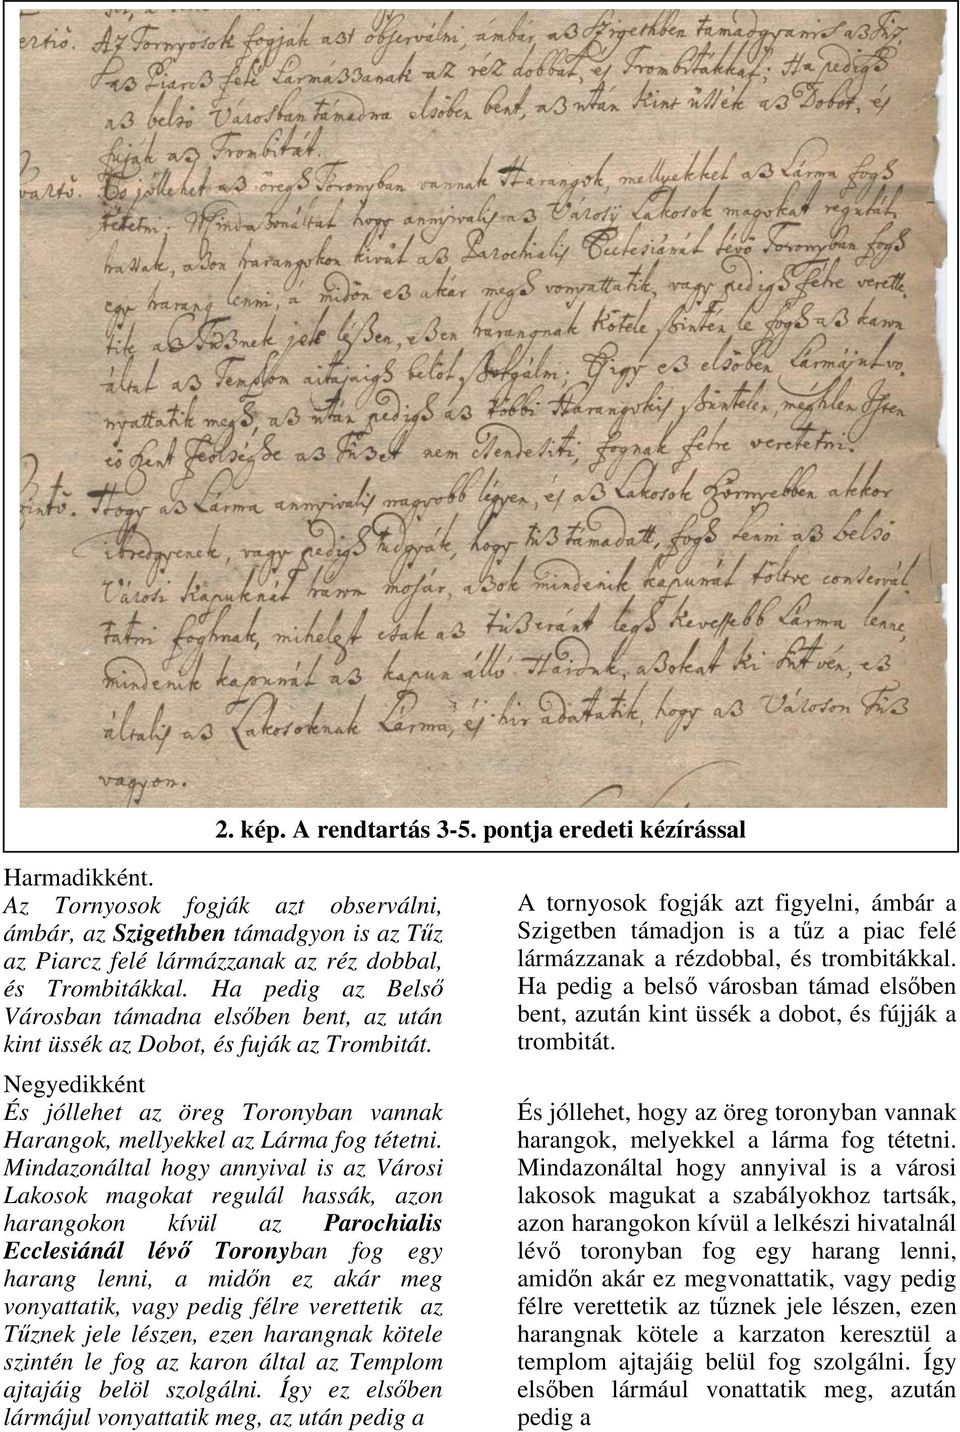 ertiò. Az Tornyosok fogjak azt observálni, ámbár, az Szigethben támadgyon is az Tüz,
az Piarcz felé Larmázzanak az réz dobbal, és Trombitákkal; Ha pedigh
az belső Városban támadna elsőben bent, az után kint üssék az Dobot, és
fuják az Trombitát.
vartò. És jóllehet az öregh Toronyban vannak Harangok, mellyekkel az Lárma fogh
tétetni; Mindazonáltal hogy annyivalis az Városij Lakosok magokat regulál
hassak, azon harangokon kivül az Parochialis Ecclesiánál lévő Toronyban fogh
egy harang lenni, a midőn ez akár megh vonyattatik, vagy pedigh félre verette,
tik az Tűznek jele lészen, ezen harangnak kötele szintén le fogh az karon
által az Templom aitajaigh belöl szolgálni; Igy ez elsőben Lármájul vo,
nyattatik megh, az után pedigh az többi Harangokis szüntelen, méghlen Isten
eő Szent Feölséghe az Tüzet nem csendesiti, fognak felre veretetni.
intò. Hogy az Lárma annyivalis nagyobb légyen, és az Lakosok könnyebben akkor
ibredgyenek, vagy pedigh tudgyák, hogy tüz támadatt, fogh lenni az belső
Városi Kapuknál harom mosár, azok mindenik kapunál töltve conservál,
tatni foghnak, mihelest csak az tüz eránt legh kevessebb Lárma lenne,
mindenik kapunál az kapun álló Haiduk, azokat ki sütvén, ez
áltatis az Lakosoknak Lárma, és hir adatatik, hogy az Városon Tüz
vagyon.
2. kép. A rendtartás 3-5. pontja eredeti kézírással
Harmadikként.
Az Tornyosok fogják azt observálni,
ámbár, az Szigethben támadgyon is az Tűz
az Piarcz felé lármázzanak az réz dobbal,
és Trombitákkal. Ha pedig az Belső
Városban támadna elsőben bent, az után
kint üssék az Dobot, és fuják az Trombitát.
Negyedikként
És jóllehet az öreg Toronyban vannak
Harangok, mellyekkel az Lárma fog tétetni.
Mindazonáltal hogy annyival is az Városi
Lakosok magokat regulál hassák, azon
harangokon kívül az Parochialis
Ecclesiánál lévő Toronyban fog egy
harang lenni, a midőn ez akár meg
vonyattatik, vagy pedig félre verettetik az
Tűznek jele lészen, ezen harangnak kötele
szintén le fog az karon által az Templom
ajtajáig belöl szolgálni. Így ez elsőben
lármájul vonyattatik meg, az után pedig a
A tornyosok fogják azt figyelni, ámbár a
Szigetben támadjon is a tűz a piac felé
lármázzanak a rézdobbal, és trombitákkal.
Ha pedig a belső városban támad elsőben
bent, azután kint üssék a dobot, és fújják a
trombitát.
És jóllehet, hogy az öreg toronyban vannak
harangok, melyekkel a lárma fog tétetni.
Mindazonáltal hogy annyival is a városi
lakosok magukat a szabályokhoz tartsák,
azon harangokon kívül a lelkészi hivatalnál
lévő toronyban fog egy harang lenni,
amidőn akár ez megvonattatik, vagy pedig
félre verettetik az tűznek jele lészen, ezen
harangnak kötele a karzaton keresztül a
templom ajtajáig belül fog szolgálni. Így
elsőben lármául vonattatik meg, azután
pedig a